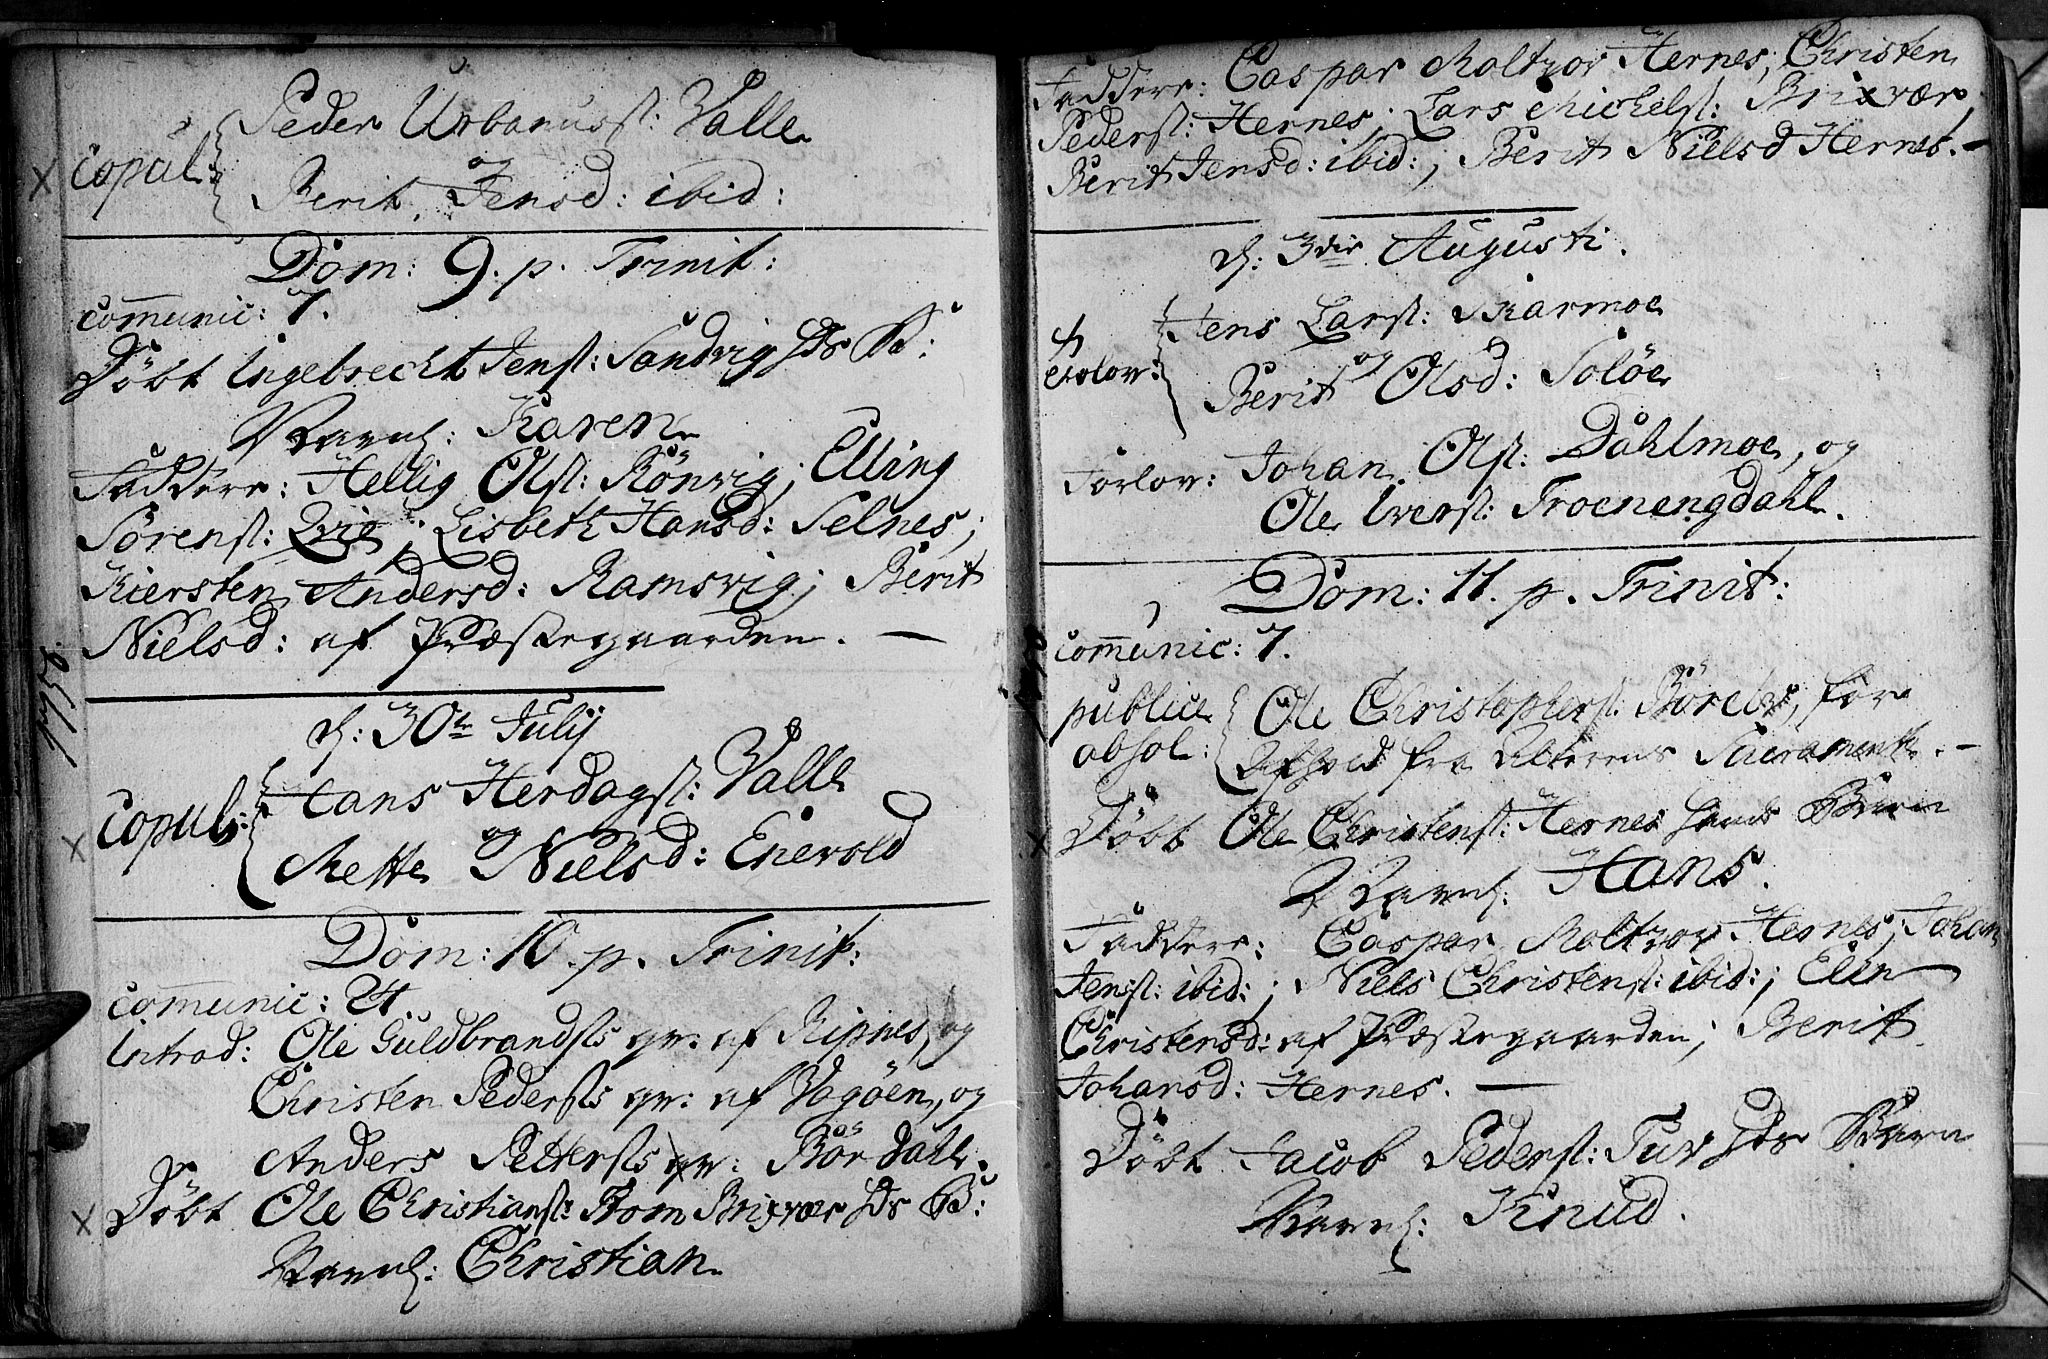 Peder Urbanusst: Valle
copul:
og
Berit Jensd: ibid:
Dom: 9. p. Trinit:
com̅unic: 7.
Döbt Ingebrecht Jenst: Sandvig Hs B:
Navnl: Karen
Faddere: Hellig Olst: Rönvig; Elling
Sörenst: Qvie; Lisbeth Hansd: Selnes;
Kiersten Andersd: Ramsvig; Berit
Nielsd: af Præstegaarden. —
d: 30te Julij
Hans Herdagst: Valle
copul:
og
Mette Nielsd: Enevold
Dom: 10. p. Trinit:
com̅unic: 24
Introd: Ole Guldbrandsts qv: af Ripnes, og
Christen Pedersts qv: af Vagöen, og
Anders Pettersts qv: Bördahl.
Döbt Ole Christianst: Brixvær Hs B:
Navnl: Christian
Faddere: Caspar Moltzov Hernes; Christen
Pederst: Hernes; Lars Michelst: Brixvær
Berit Jensd: ibid:; Berit Nielsd Hernes. —
d: 3die Augusti.
Jens Larst: Skarmoe
trolov:
og
Berit Olsd: Solöe
Forlov: Johan Olst: Dahlmoe, og
Ole Iverst: Troenengdahl.
Dom: 11. p. Trinit:
com̅unic: 7.
publice Ole Christopherst: for
absol: Afhold fra Alterens Sacramente. —
Döbt Ole Christenst: Hernes hans Barn
Navnl: Hans.
Faddere: Caspar Moltzov Hernes; Johan
Jenst: ibid:; Niels Christenst: ibid:; Elen
Christensd: af Præstegaarden; Berit
Johansd: Hernes. —
Döbt Jacob Pederst: Tuv Hs Barn
Navnl: Knud.